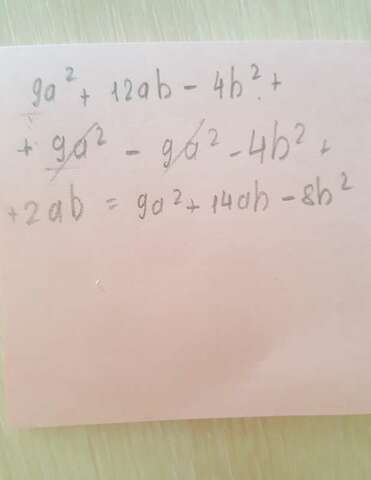 9a² + 12ab - 4b² +
+ 9a² - 9a² - 4b² +
+2ab = 9a² + 14ab - 8b²